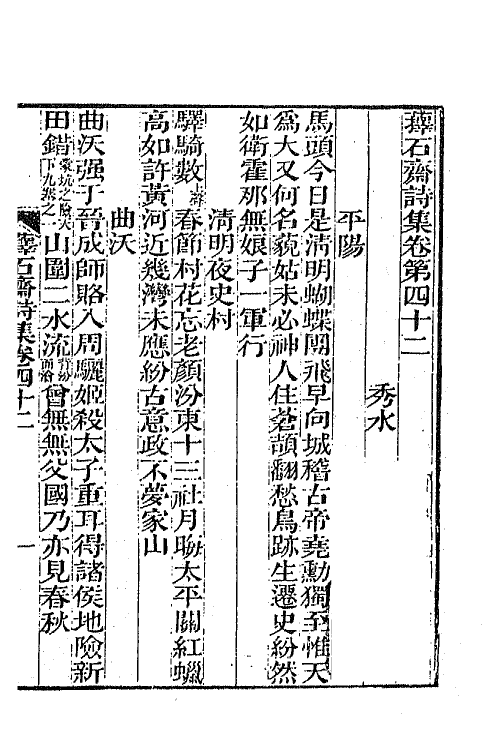 蘀石齋詩集卷第四十二
秀水
平陽
馬頭今日是淸明蝴蝶團飛早向城稽古帝堯勳獨至惟天
爲大又何名藐姑未必神人住蒼頡翻愁鳥跡生遷史紛然
如衛霍那無娘子一軍行
淸明夜史村
驛騎數上聲春節村花忘老顏汾東十三社月聯太平關紅蠟
高如許黃河近幾灣未應紛古意政不夢家山
曲沃
曲沃强于晉成師賂入周驪姬殺太子重耳得諸侯地險新
田錯蒙坑之險天下九塞之一山圍二水流會無無父國乃亦見春秋
蘀石齋詩集卷四十二
一